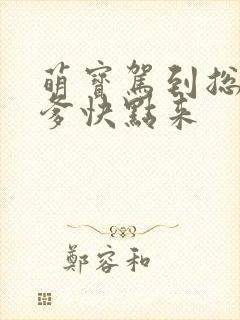 萌寶駕到总
爹快點来
鄭容和